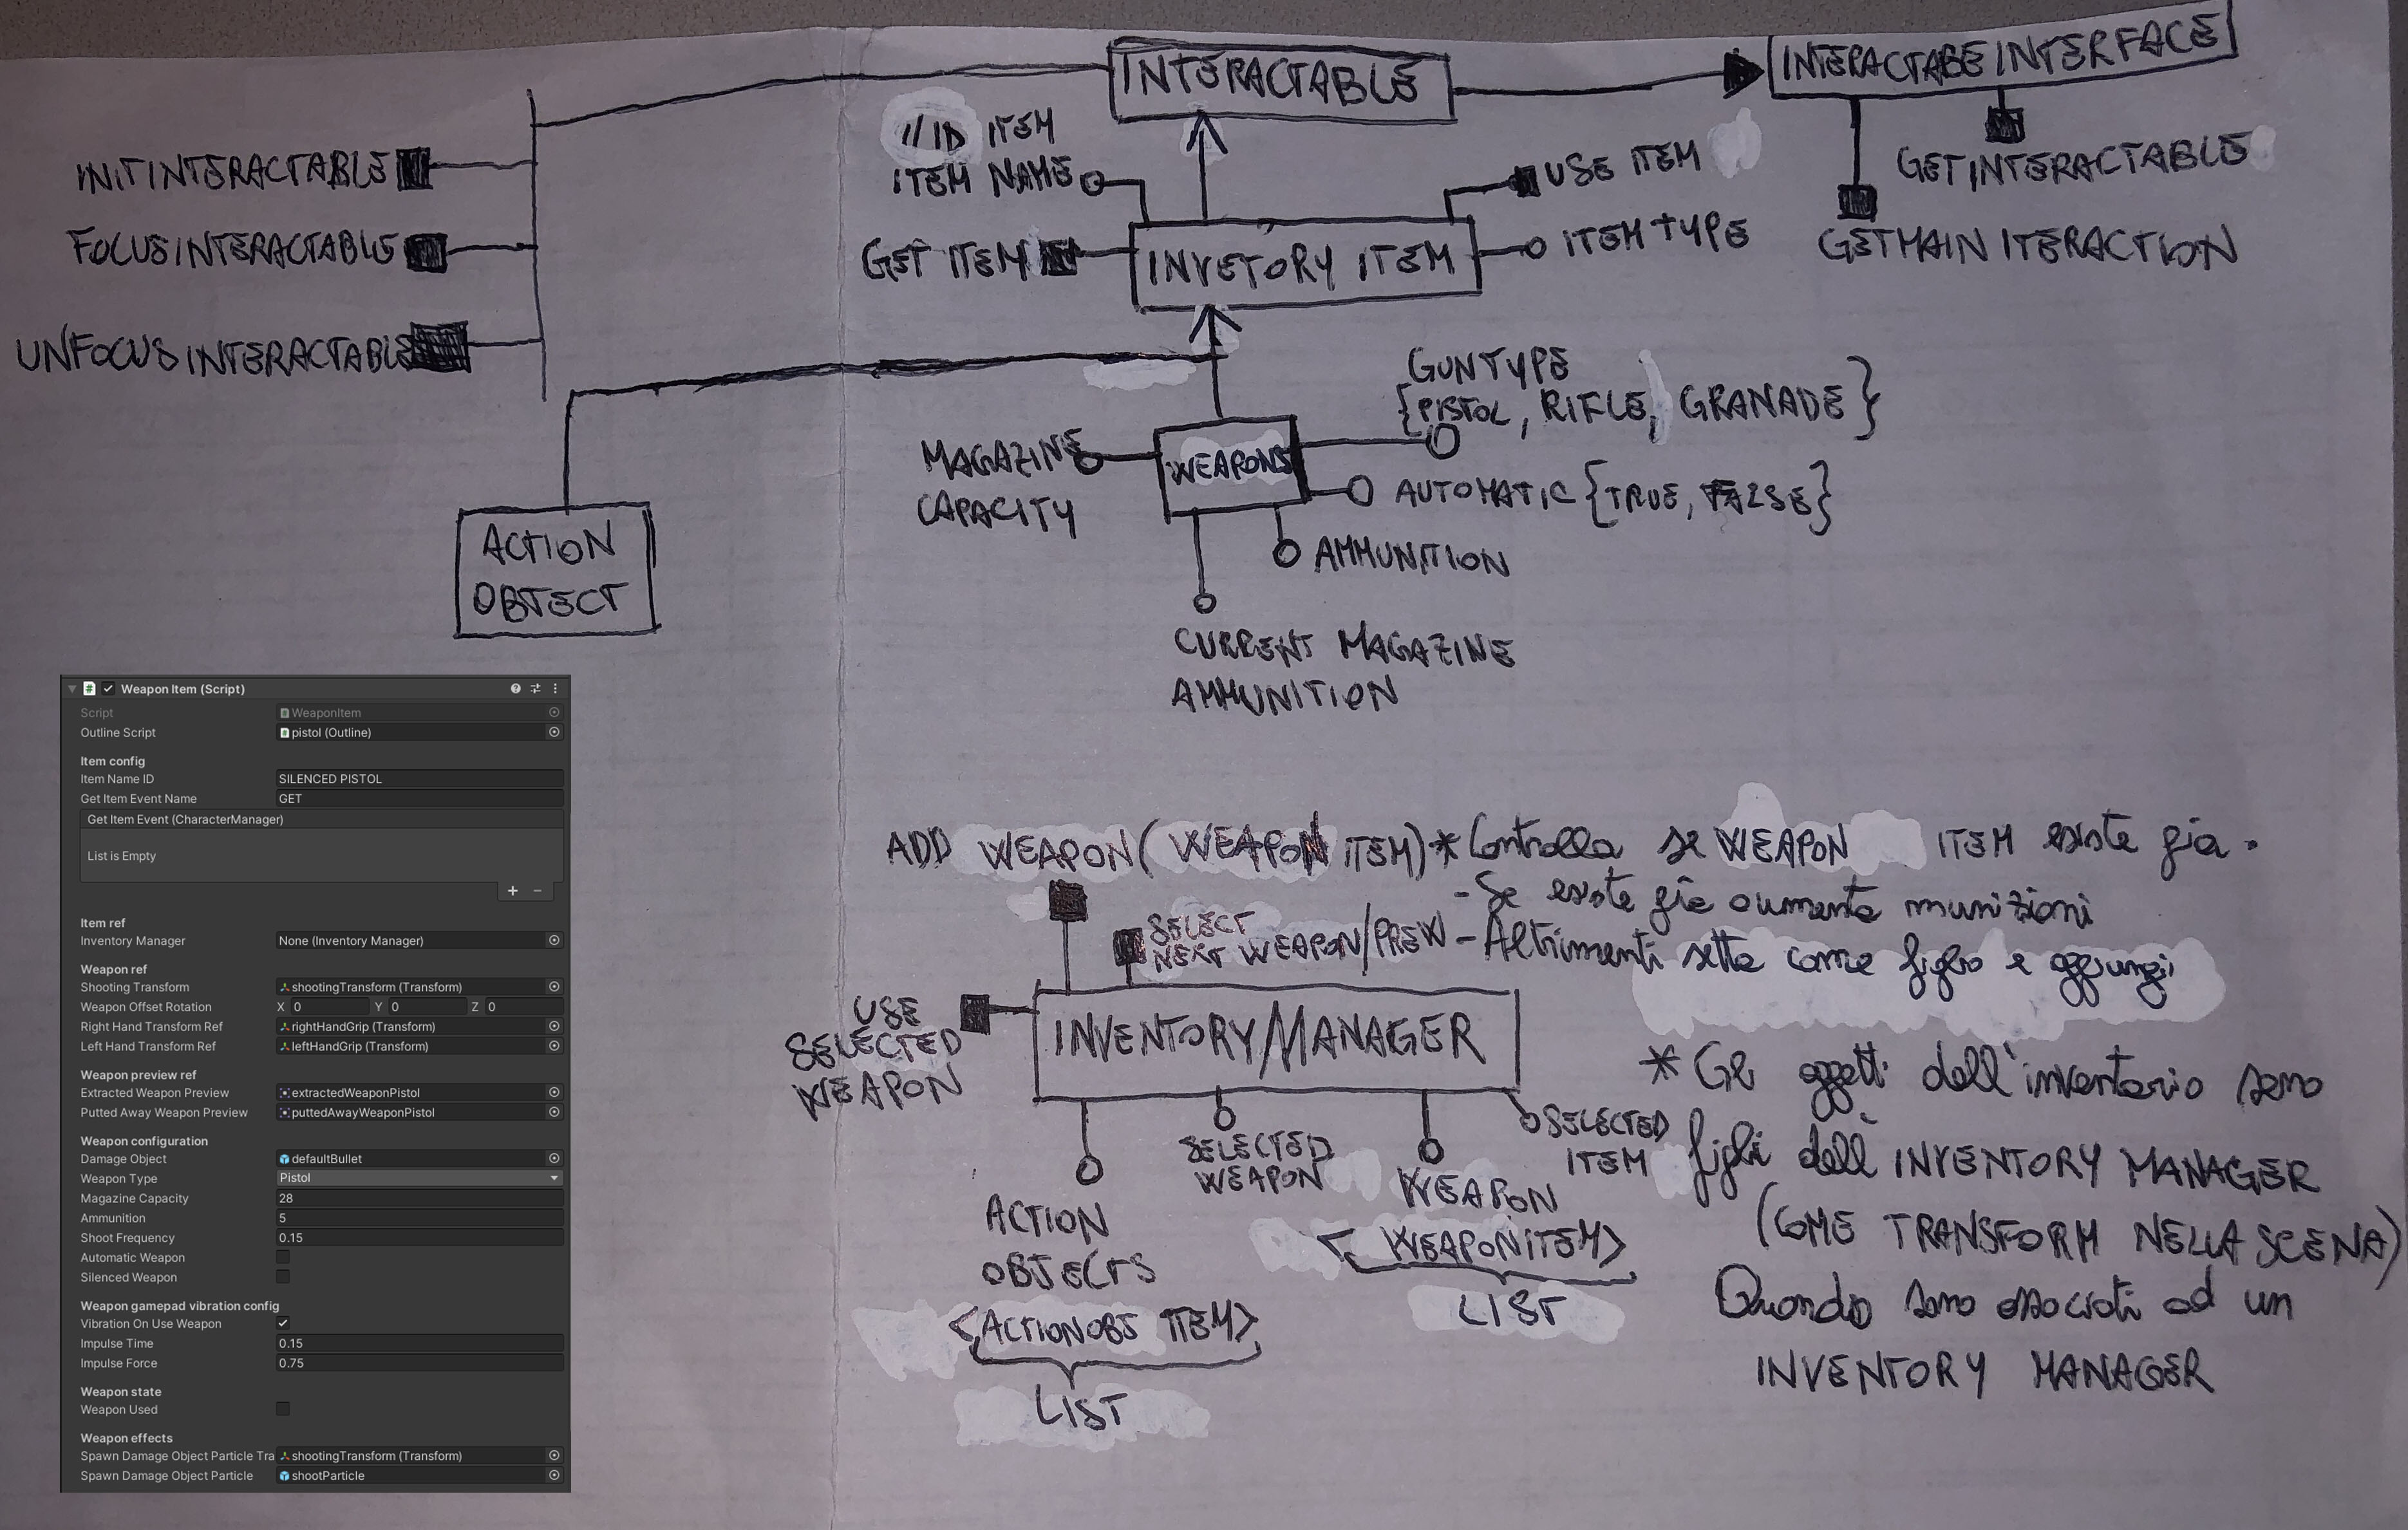 INTERACTABLE
INTERACTABE INTERFACE
INITINTERACTABLE
FOCUSINTERACTABLE
UNFOCUSINTERACTABLE
// ID ITEM
ITEM NAME
GET ITEM
INVETORY ITEM
USE ITEM
ITEM TYPE
GETINTERACTABLE
GETMAIN ITERACTION
ACTION
OBJECT
MAGAZINE
CAPACITY
WEAPONS
GUN TYPE
{PISTOL, RIFLE, GRANADE}
AUTOMATIC {TRUE, FALSE}
AMMUNITION
CURRENT MAGAZINE
AMMUNITION
Weapon Item (Script)
Script WeaponItem
Outline Script pistol (Outline)
Item config
Item Name ID SILENCED PISTOL
Get Item Event Name GET
Get Item Event (CharacterManager)
List is Empty
+ −
Item ref
Inventory Manager None (Inventory Manager)
Weapon ref
Shooting Transform shootingTransform (Transform)
Weapon Offset Rotation X 0 Y 0 Z 0
Right Hand Transform Ref rightHandGrip (Transform)
Left Hand Transform Ref leftHandGrip (Transform)
Weapon preview ref
Extracted Weapon Preview extractedWeaponPistol
Putted Away Weapon Preview puttedAwayWeaponPistol
Weapon configuration
Damage Object defaultBullet
Weapon Type Pistol
Magazine Capacity 28
Ammunition 5
Shoot Frequency 0.15
Automatic Weapon
Silenced Weapon
Weapon gamepad vibration config
Vibration On Use Weapon
Impulse Time 0.15
Impulse Force 0.75
Weapon state
Weapon Used
Weapon effects
Spawn Damage Object Particle Tra shootingTransform (Transform)
Spawn Damage Object Particle shootParticle
ADD WEAPON(WEAPON ITEM) * Controlla se WEAPON ITEM esiste già.
- Se esiste già aumenta munizioni
- Altrimenti setta come figlio e aggiungi
SELECT
NEXT WEAPON/PREW
USE
SELECTED
WEAPON
INVENTORY/MANAGER
ACTION
OBJECTS
<ACTIONOBJ ITEM>
LIST
SELECTED
WEAPON
WEAPON
<WEAPONITEM>
LIST
SELECTED
ITEM
* Gli oggetti dell'inventario sono
figli dell' INVENTORY MANAGER
(COME TRANSFORM NELLA SCENA)
Quando sono associati ad un
INVENTORY MANAGER